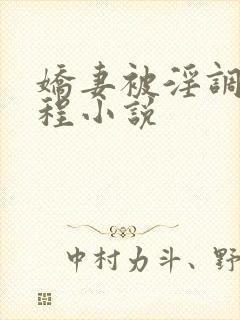 嬌妻被淫調
程小説
中村力斗、野